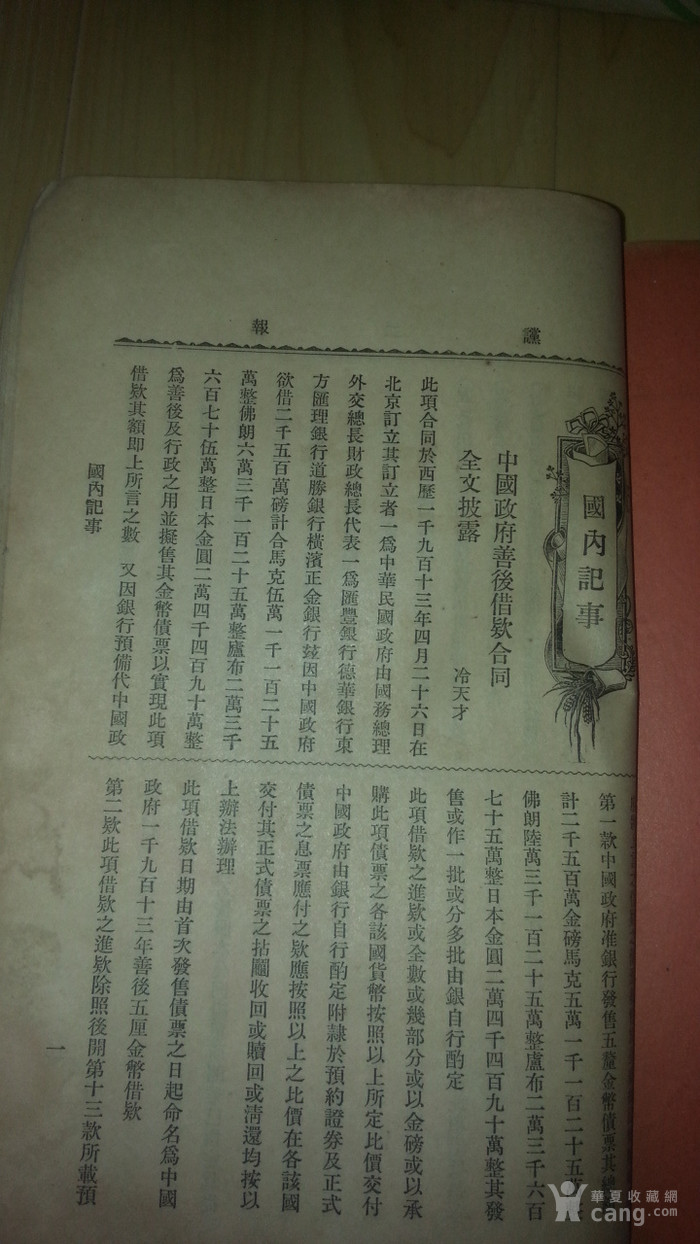 讜報
國內記事
中國政府善後借欵合同
全文披露
冷天才
此項合同於西歷一千九百十三年四月二十六日在
北京訂立其訂立者一爲中華民國政府由國務總理
外交總長財政總長代表一爲匯豐銀行德華銀行東
方匯理銀行道勝銀行橫濱正金銀行茲因中國政府
欲借二千五百萬磅計合馬克伍萬一千一百二十五
萬整佛朗六萬三千一百二十五萬整盧布二萬三千
六百七十伍萬整日本金圓二萬四千四百九十萬整
爲善後及行政之用並擬售其金幣債票以實現此項
借欵其額即上所言之數 又因銀行預備代中國政
第一款中國政府准銀行發售五釐金幣債票其總
計二千五百萬金磅馬克五萬一千一百二十五萬
佛朗陸萬三千一百二十五萬整盧布二萬三千六百
七十五萬整日本金圓二萬四千四百九十萬整其發
售或作一批或分多批由銀自行酌定
此項借欵之進欵或全數或幾部分或以金磅或以承
購此項債票之各該國貨幣按照以上所定比價交付
中國政府由銀行自行酌定附隷於預約證券及正式
債票之息票應付之欵應按照以上之比價在各該國
交付其正式債票之拈鬮收回或贖回或淸還均按以
上辦法辦理
此項借欵日期由首次發售債票之日起命名爲中國
政府一千九百十三年善後五厘金幣借欵
第二欵此項借欵之進欵除照後開第十三款所載預
國內記事
一
華夏收藏網
cang.com